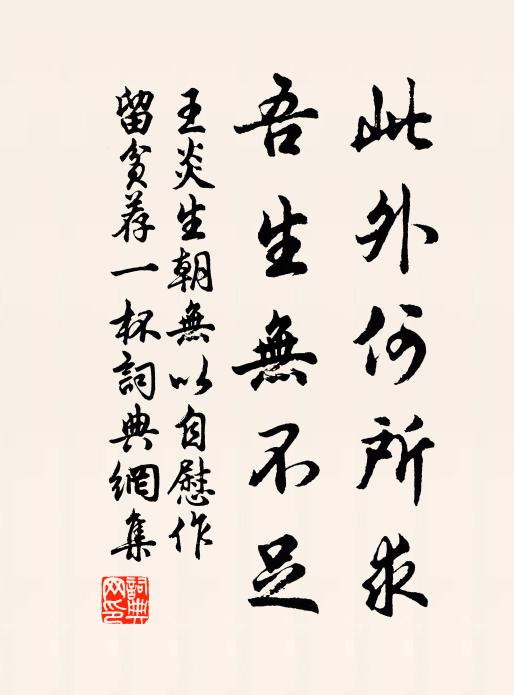 此外何所求
吾生無不足
王炎生朝無以自慰作
留貧荐一杯詞典網集
詞典網印